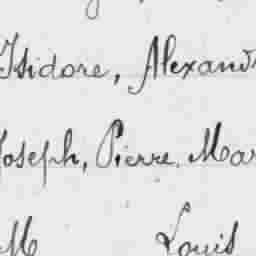 Isidore, Alexand
Joseph, Pierre, Mar
M Louis